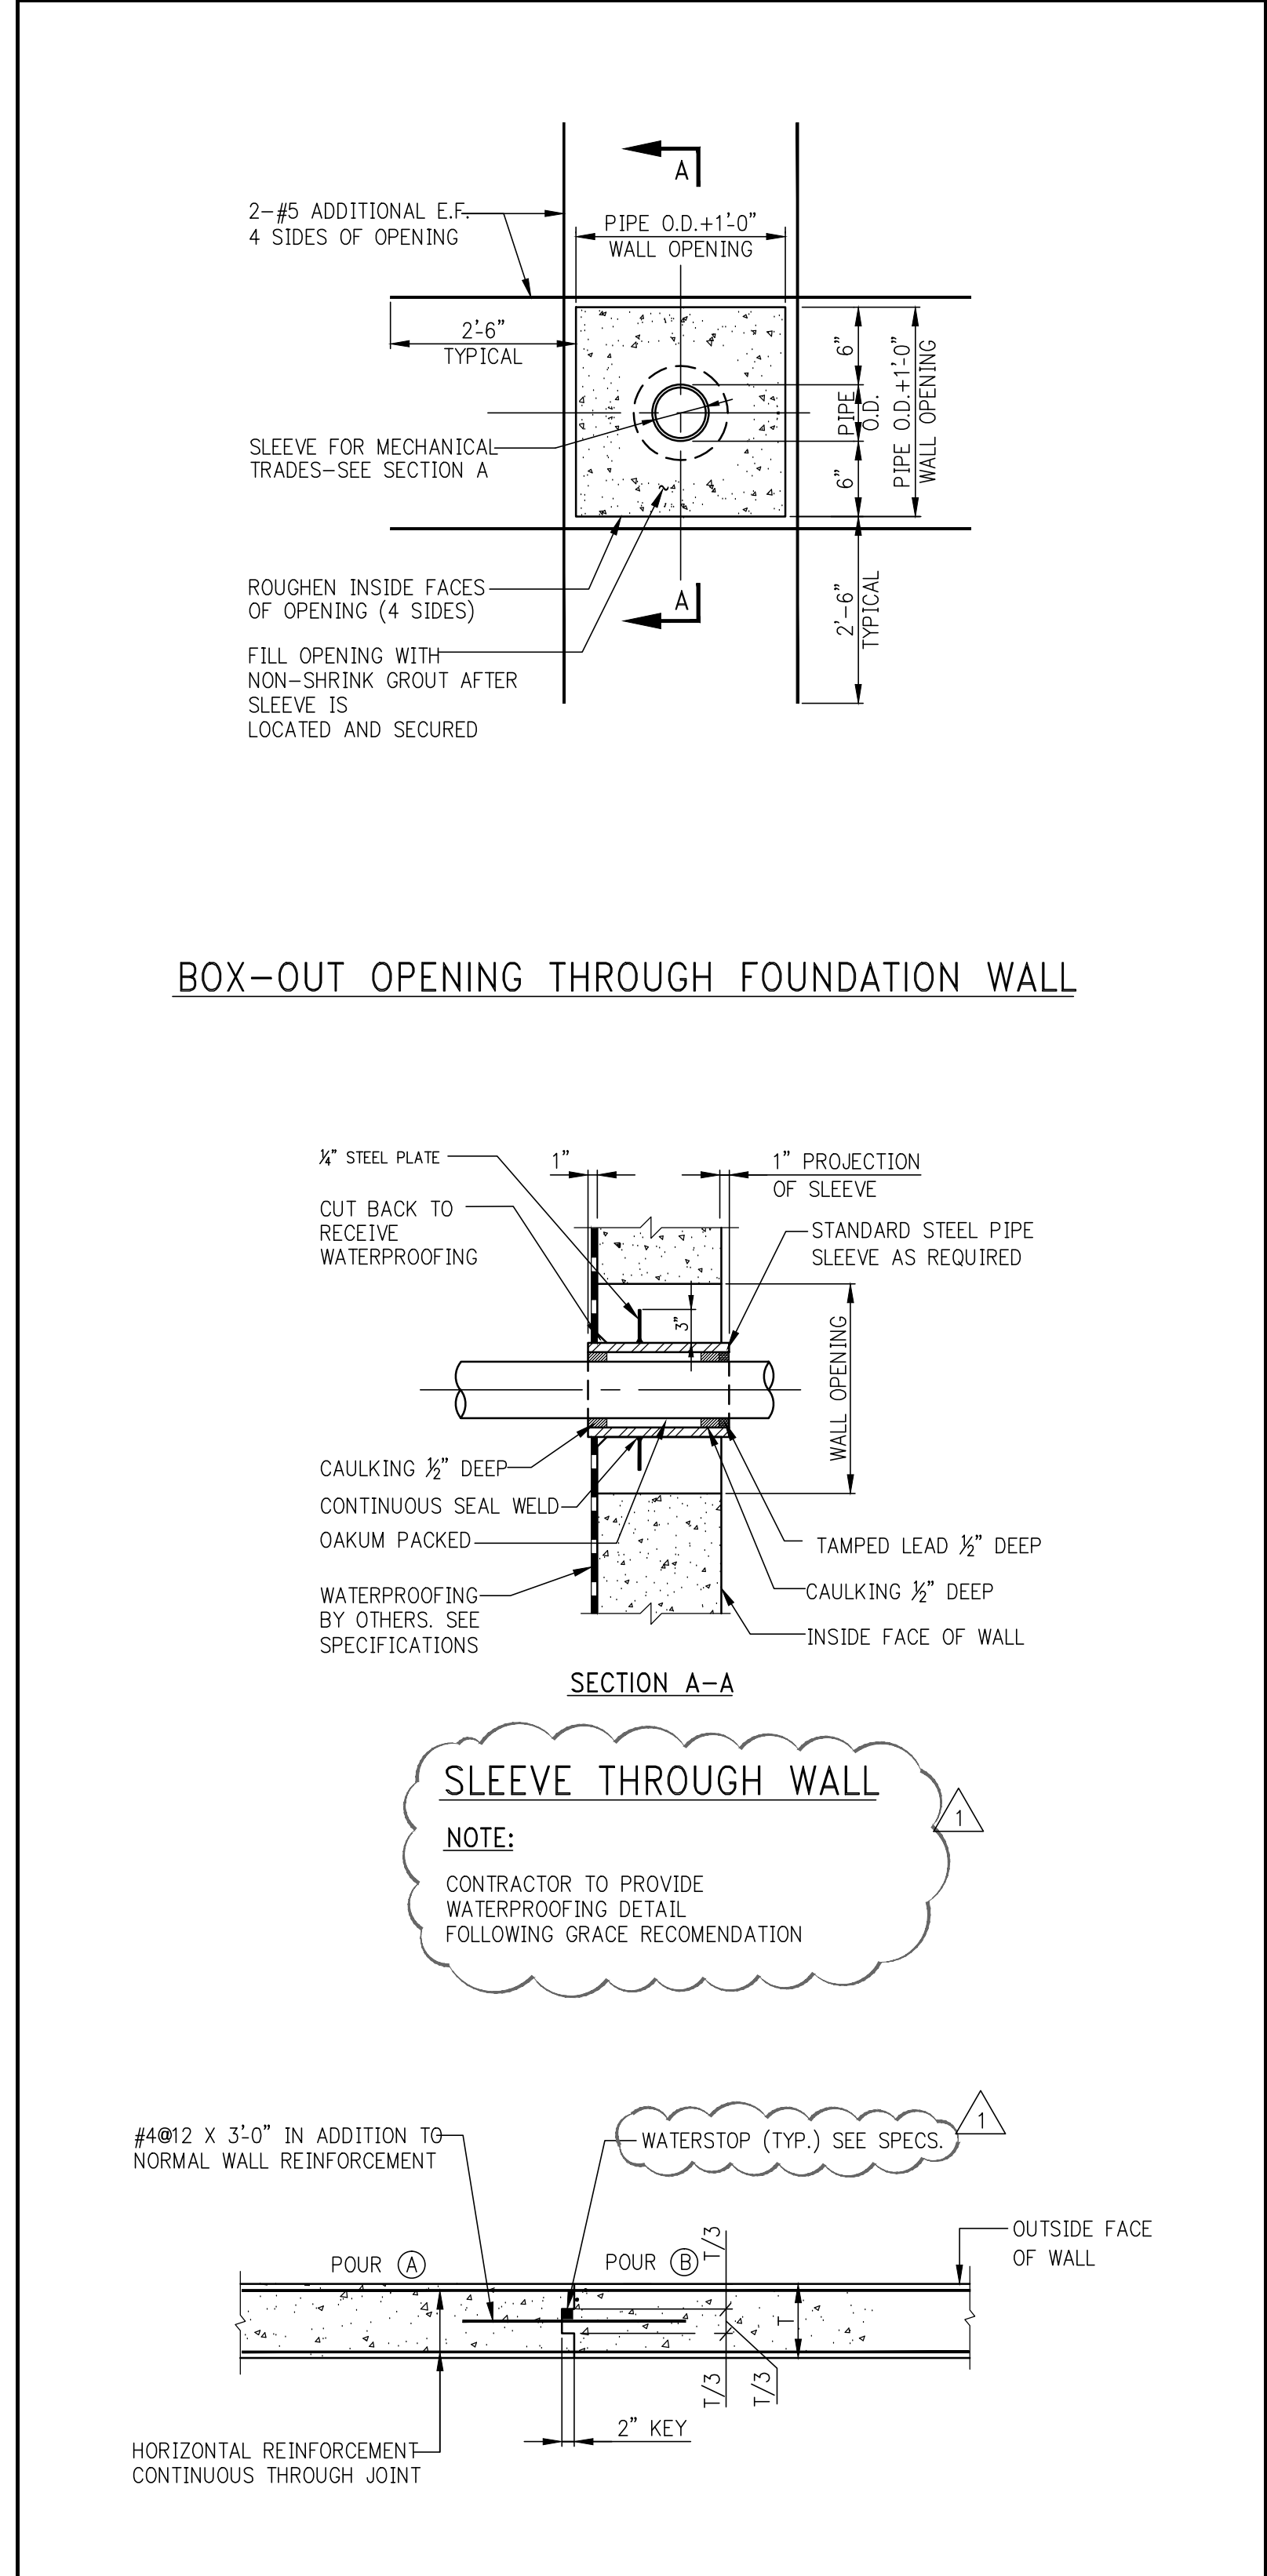 A
2-#5 ADDITIONAL E.F.
4 SIDES OF OPENING
PIPE O.D.+1'-0"
WALL OPENING
2'-6"
TYPICAL
6"
PIPE
O.D.
6"
PIPE O.D.+1'-0"
WALL OPENING
SLEEVE FOR MECHANICAL
TRADES-SEE SECTION A
ROUGHEN INSIDE FACES
OF OPENING (4 SIDES)
A
2'-6"
TYPICAL
FILL OPENING WITH
NON-SHRINK GROUT AFTER
SLEEVE IS
LOCATED AND SECURED
BOX-OUT OPENING THROUGH FOUNDATION WALL
¼" STEEL PLATE
1"
1" PROJECTION
OF SLEEVE
CUT BACK TO
RECEIVE
WATERPROOFING
STANDARD STEEL PIPE
SLEEVE AS REQUIRED
3"
WALL OPENING
CAULKING ½" DEEP
CONTINUOUS SEAL WELD
OAKUM PACKED
TAMPED LEAD ½" DEEP
CAULKING ½" DEEP
WATERPROOFING
BY OTHERS. SEE
SPECIFICATIONS
INSIDE FACE OF WALL
SECTION A-A
SLEEVE THROUGH WALL
1
NOTE:
CONTRACTOR TO PROVIDE
WATERPROOFING DETAIL
FOLLOWING GRACE RECOMENDATION
#4@12 X 3'-0" IN ADDITION TO
NORMAL WALL REINFORCEMENT
WATERSTOP (TYP.) SEE SPECS.
1
OUTSIDE FACE
OF WALL
POUR A
POUR B
T/3
T
T/3
T/3
2" KEY
HORIZONTAL REINFORCEMENT
CONTINUOUS THROUGH JOINT